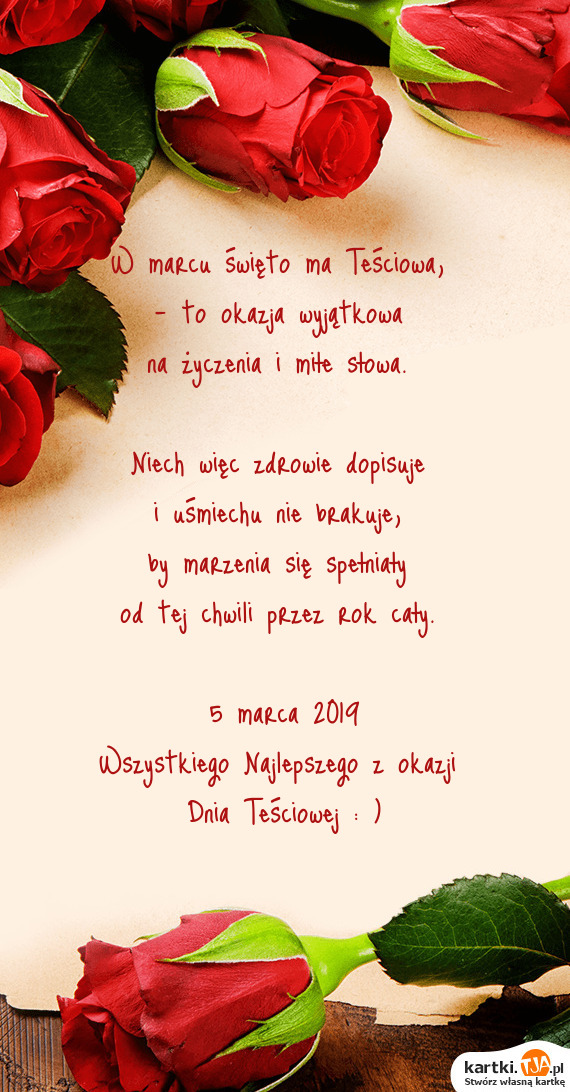 W marcu święto ma Teściowa,
- to okazja wyjątkowa
na życzenia i miłe słowa.
Niech więc zdrowie dopisuje
i uśmiechu nie brakuje,
by marzenia się spełniały
od tej chwili przez rok cały.
5 marca 2019
Wszystkiego Najlepszego z okazji
Dnia Teściowej : )
kartki.TJA.pl
Stwórz własną kartkę